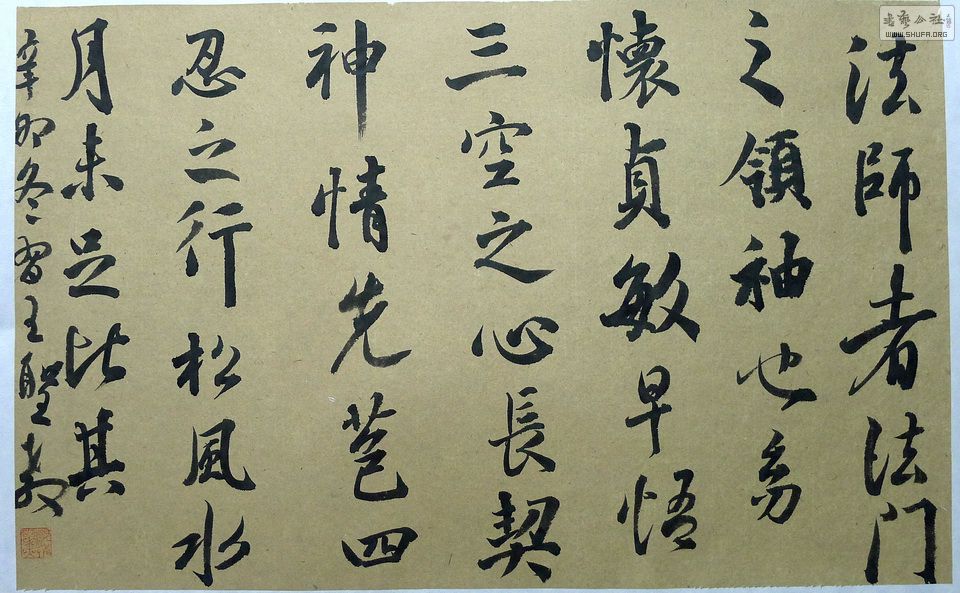 法師者法門
之領袖也㓜
懷貞敏早悟
三空之心長契
神情先苞四
忍之行松風水
月未足比其
辛卯冬習王聖教
書藝公社
WWW.SHUFA.ORG